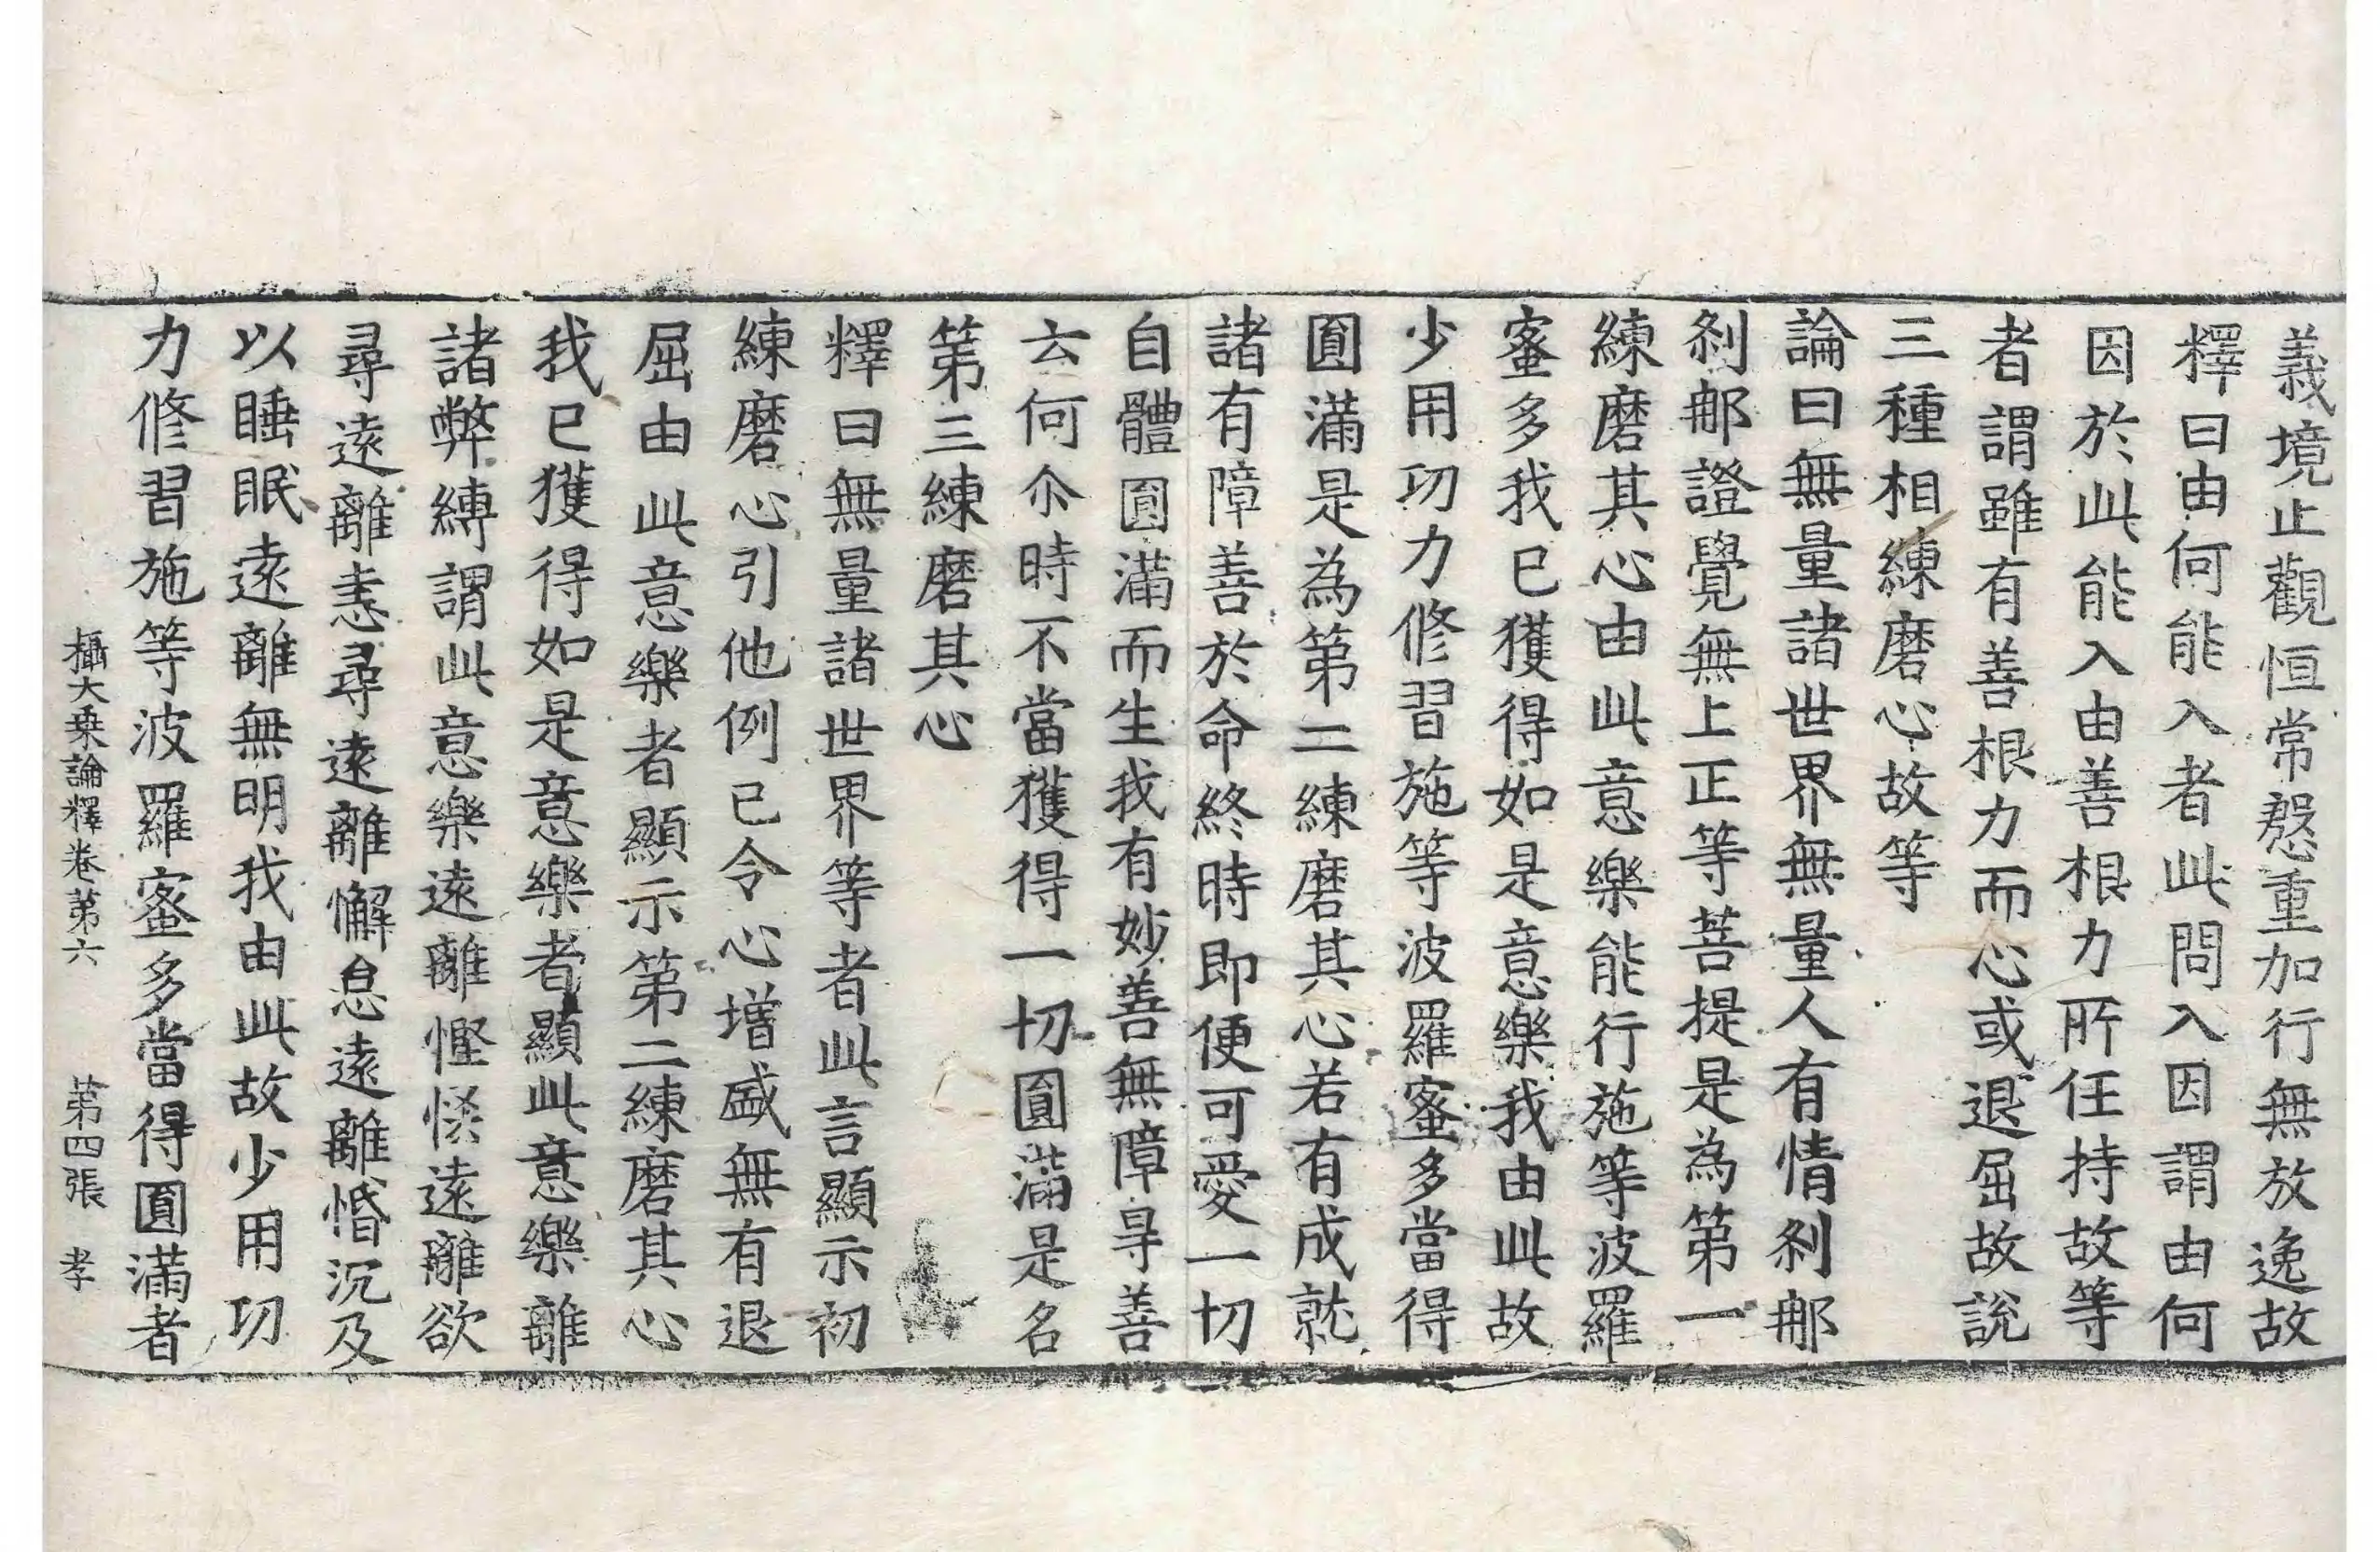 義境止觀恒常慇重加行無放逸故
釋曰由何能入者此問入因謂由何
因於此能入由善根力所任持故等
者謂雖有善根力而心或退屈故說
三種相練磨心故等
論曰無量諸世界無量人有情剎那
剎那證覺無上正等菩提是為第一
練磨其心由此意樂能行施等波羅
蜜多我已獲得如是意樂我由此故
少用功力修習施等波羅蜜多當得
圓滿是為第二練磨其心若有成就
諸有障善於命終時即便可愛一切
自體圓滿而生我有妙善無障㝵善
云何尒時不當獲得一切圓滿是名
第三練磨其心
釋曰無量諸世界等者此言顯示初
練磨心引他例已令心增盛無有退
屈由此意樂者顯示第二練磨其心
我已獲得如是意樂者顯此意樂離
諸弊縛謂此意樂遠離慳悋遠離欲
尋遠離恚尋遠離懈怠遠離惛沉及
以睡眠遠離無明我由此故少用功
力修習施等波羅蜜多當得圓滿者
攝大乘論釋卷第六　第四張　孝